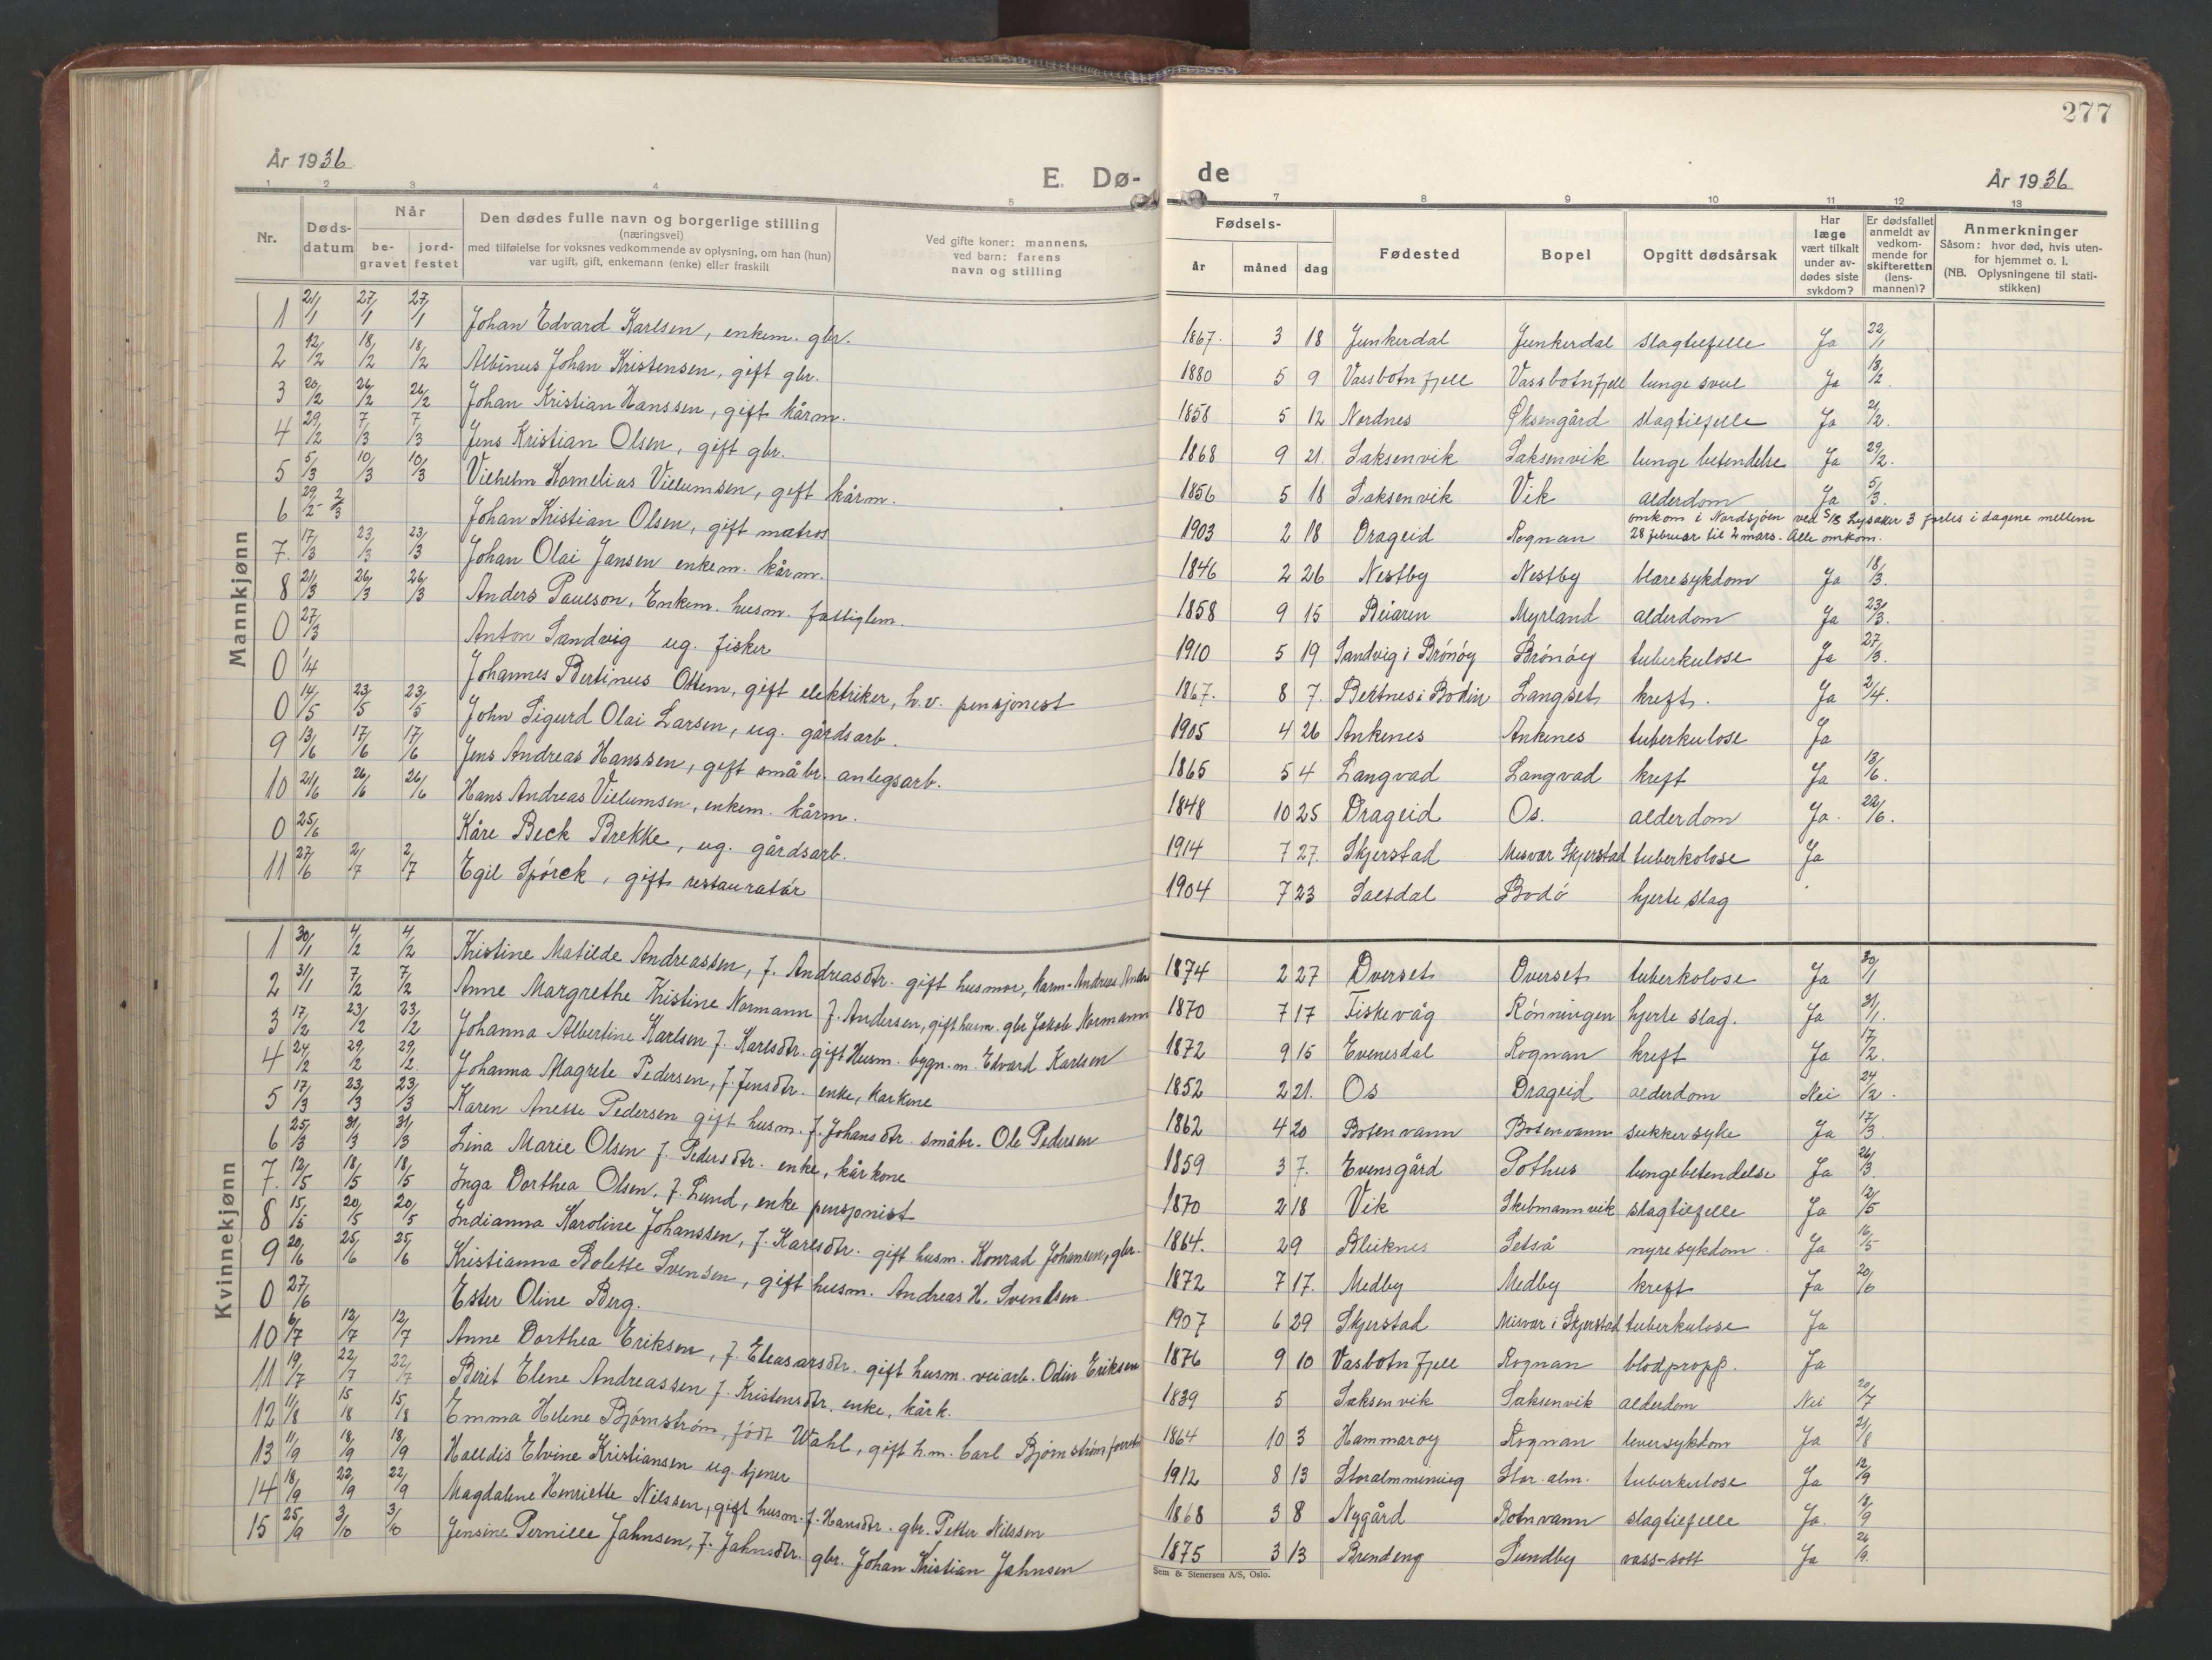 277
År 1936
E. Dø-
de
År 1936
1 2 3 4 5 7 8 9 10 11 12 13
Nr.
Døds-datum
Når
be-gravet
jord-festet
Den dødes fulle navn og borgerlige stilling
(næringsvei)
med tilføielse for voksnes vedkommende av oplysning, om han (hun)
var ugift, gift, enkemann (enke) eller fraskilt
Ved gifte koner: mannens,
ved barn: farens
navn og stilling
Fødsels-
år måned dag
Fødested
Bopel
Opgitt dødsårsak
Har læge vært tilkalt under av-dødes siste sykdom?
Er dødsfallet anmeldt av vedkom-mende for skifteretten (lens-mannen)?
Anmerkninger
Såsom: hvor død, hvis uten-
for hjemmet o. l.
(NB. Oplysningene til stati-
stikken)
Mannkjønn
1 21/1 27/1 27/1 Johan Edvard Karlsen, enkem. gbr. 1867. 3 18 Junkerdal Junkerdal slagtilfelle Ja 22/1
2 12/2 18/2 18/2 Albinus Johan Kristensen, gift gbr. 1880 5 9 Vassbotnfjell Vassbotnfjell lunge svul Ja 13/2.
3 20/2 26/2 26/2 Johan Kristian Hanssen, gift kårm. 1858 5 12 Nordnes Øksengård slagtilfelle Ja 21/2.
4 29/2 7/3 7/3 Jens Kristian Olsen, gift gbr. 1868 9 21. Saksenvik Saksenvik lunge betendelse Ja 29/2.
5 5/3 10/3 10/3 Vilhelm Kornelius Villumsen, gift kårm. 1856 5 18 Saksenvik Vik alderdom Ja 5/3.
6 29/2 - 2/3 Johan Kristian Olsen, gift matros 1903 2 18 Drageid Rognan omkom i Nordsjøen ved S/S Lysaker 3 forlis i dagene mellem
28 februar til 2 mars. Alle omkom.
7. 17/3 23/3 23/3 Johan Olai Jansen enkem. kårm. 1846 2 26 Nestby Nestby blæresykdom Ja 18/3.
8 21/3 26/3 26/3 Anders Paulson, Enkem. husm. fattiglem. 1858 9 15 Beiaren Myrland alderdom Ja 23/3.
0 27/3 Anton Sandvig ug. fisker 1910 5 19 Sandvig i Brönöy Brönöy tuberkulose Ja 27/3.
0 1/4 Johannes Bertinus Ottem, gift elektriker, h.v. pensjonist 1867. 8 7. Bertnes i Bodin Langset kreft. Ja 2/4.
0 14/5 23/5 23/5 John Sigurd Olai Larsen, ug. gårdsarb. 1905 4 26 Ankenes Ankenes tuberkulose Ja
9 13/6 17/6 17/6 Jens Andreas Hanssen, gift småbr. anlegsarb. 1865 5 4 Langvad Langvad kreft Ja 13/6.
10 21/6 26/6 26/6 Hans Andreas Villumsen, enkem. kårm. 1848 10 25 Drageid Os. alderdom Ja. 22/6.
0 25/6 Kåre Beck Brekke, ug. gårdsarb. 1914 7 27. Skjerstad Misvær Skjerstad tuberkolose Ja
11 27/6 2/7 2/7 Egil Spörck, gift restauratör 1904 7 23 Saltdal Bodö hjerte slag
Kvinnekjønn
1 30/1 4/2 4/2 Kristine Matilde Andreassen, f. Andreasdtr. gift husmor, kårm. Andreas 1874 2 27 Overset Overset tuberkolose Ja 30/1
2 31/1 7/2 7/2 Anne Margrethe Kristine Normann f. Andersen, gift husm. gbr Jakob Normann 1870 7 17 Fiskevåg Rönningen hjerte slag. Ja 31/1.
3 17/2 23/2 23/2 Johanna Albertine Karlsen f. Karlsdtr. gift Husm. bygn.m. Edvard Karlsen 1872 9 15 Evenesdal Rognan kreft Ja 17/2.
4 24/2 29/2 29/2. Johanna Magrete Pedersen, f. Jensdtr. enke, kårkone 1852 2 21. Os Drageid alderdom Nei 24/2.
5 17/3 23/3 23/3 Karen Anette Pedersen gift husm. f. Johansdtr. småbr. Ole Pedersen 1862 4 20 Botenvann Botenvann sukkersyke Ja 17/3.
6 25/3 31/3 31/3 Lina Marie Olsen f. Pedersdtr. enke, kårkone 1859 3 7. Evensgård Pothus lungebetendelse Ja 26/3.
7. 12/5 18/5 18/5 Inga Dorthea Olsen, f. Lund, enke pensjonist 1870 2 18 Vik Skibmannvik slagtilfelle Ja 12/5
8 15/5 20/5 20/5 Indianna Karoline Johanssen, f. Karlsdtr. gift husm. Konrad Johansen, gbr. 1864. 2 9 Bleiknes Setså nyresykdom. Ja 16/5
9 20/6 25/6 25/6 Kristianna Bolette Svensen, gift husm. Andreas H. Svendsen 1872 7 17. Medby Medby kreft Ja 20/6
0 27/6 Ester Oline Berg. 1907 6 29 Skjerstad Misvær i Skjerstad tuberkulose Ja
10 6/7 12/7 12/7 Anne Dorthea Eriksen, f. Eleasarsdtr. gift husm. veiarb. Odin Eriksen 1876 9 10 Vasbotnfjell Rognan blodpropp. Ja
11 19/7 22/7 22/7 Berit Elene Andreassen f. Kristensdtr. enke, kårk. 1839 5 Saksenvik Saksenvik alderdom Nei 20/7
12 11/8 15/8 15/8 Emma Helene Bjørnstrøm, født Wahl, gift h.m. Carl Bjørnstrøm 1864 10 3 Hammarøy Rognan leversykdom Ja 21/8
13 11/9 18/9 18/9 Halldis Elvine Kristiansen ug. tjener 1912 8 13 Storalmmening Stor.alm. tuberkulose Ja 12/9
14 18/9 22/9 22/9 Magdaline Henriette Nilssen, gift husm. f. Hansdtr. gbr. Petter Nilssen 1868 3 8 Nygård Botnvann slagtilfelle Ja. 18/9
15 25/9 3/10 3/10 Jensine Pernille Jahnsen, f. Jahnsdtr. gbr. Johan Kristian Jahnsen 1875 3 13 Brendeng Sundby vass-sott Ja 26/9.
Sem & Stenersen A/S, Oslo.